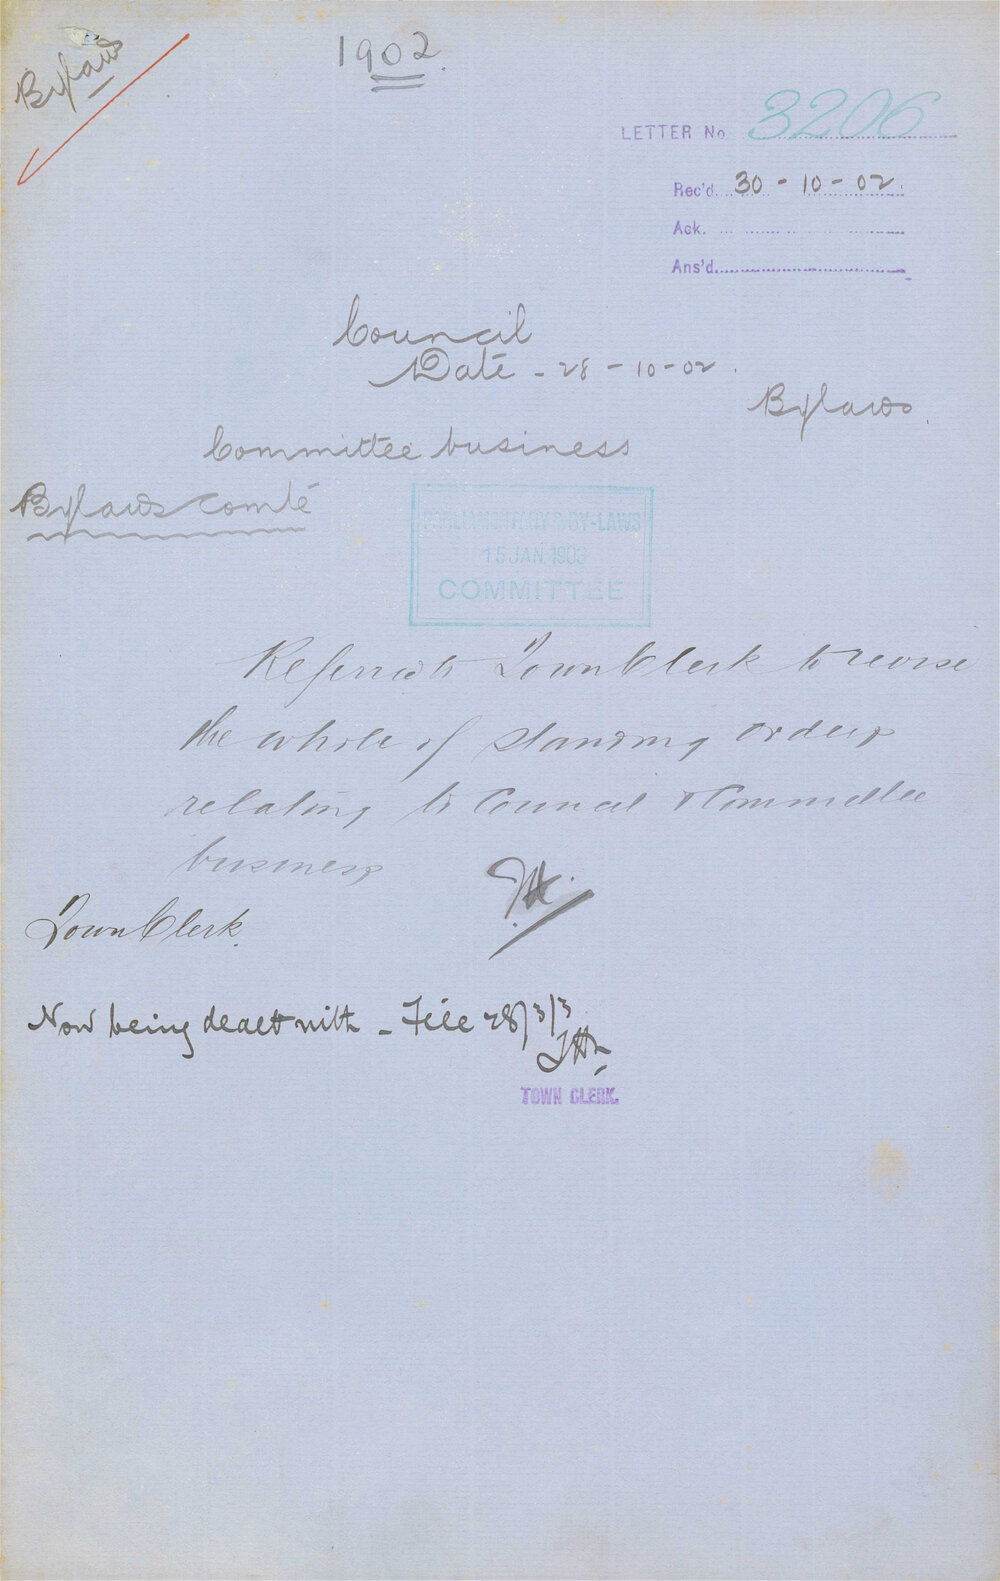 Bylaws
1902.
LETTER No 3206
Rec'd. 30-10-02.
Ack.
Ans'd.
Council
Date - 28-10-02.
Bylaws.
Committee business
Bylaws Comte
PARLIAMENTARY & BY-LAWS
15 JAN. 1903
COMMITTEE
Referred to Town Clerk to revise
the whole of standing orders
relating to Council & Committee
business
Town Clerk.
Now being dealt with - File 28/3/3
TOWN CLERK.